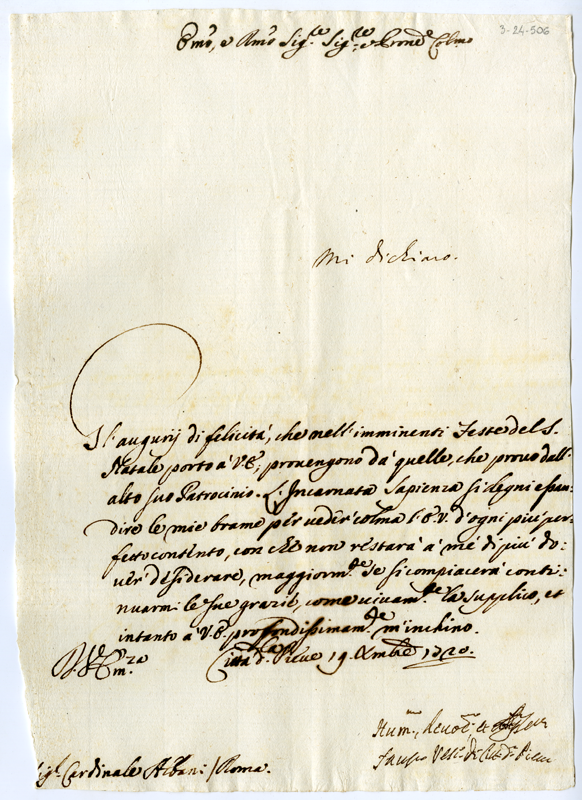 3-24-506
Emo, e Rmo Sig.re Sig.re e Prone Colmo
Mi dichiaro.
Gl'augurij di felicità, che nell'imminenti Feste del S.
Natale porto à V.E., provengono da quelle, che provo dall'
alto suo Patrocinio. L'Incarnata Sapienza si degni esau-
dire le mie brame per veder colma l'E.V. d'ogni più per-
fetto contento, con che non restarà à me di più do-
ver desiderare, maggiorm.te se si compiacerà conti-
nuarmi le sue grazie, come vivam.te la supplico, et
intanto à V.E. profondissimam.te m'inchino.
Città d. Pieve 19 Xmbre 1720.
Hum., devot., et
Vesc. di Citt. d. Pieve
Sig. Cardinale Albani / Roma.